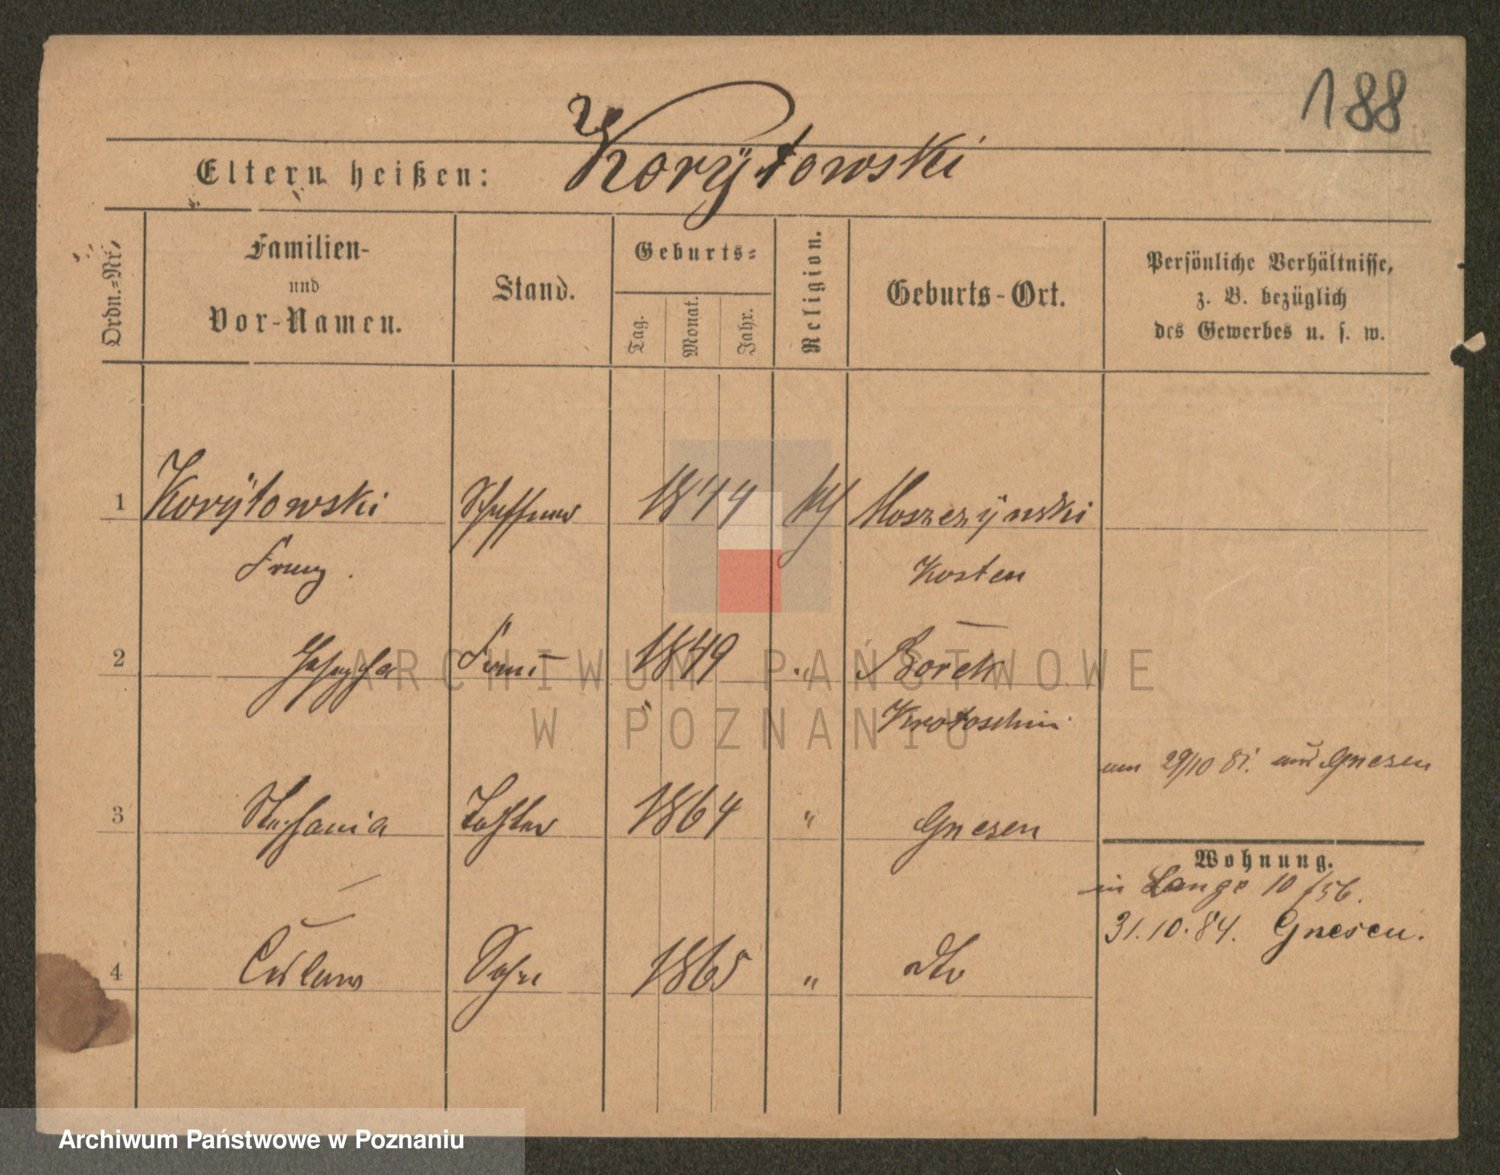 188
Eltern heißen: Korÿtowski
Ordn.-Nr.
Familien-
und
Vor-Namen.
Stand.
Geburts-
Tag.
Monat.
Jahr.
Religion.
Geburts-Ort.
Persönliche Verhältnisse,
z. B. bezüglich
des Gewerbes u. s. w.
1 Korÿtowski Schaffner 1844 Moszczÿnski
Franz. Kosten
2 Josepha Frau 1849 " Borek
" Krotoschin
ARCHIWUM PAŃSTWOWE
W POZNANIU
am 29/10 81. aus Gnesen
3 Stephania Tochter 1864 " Gnesen
Wohnung.
in Lange 10 /56.
31.10.84. Gnesen.
4 Sohn 1865 " dto
Archiwum Państwowe w Poznaniu